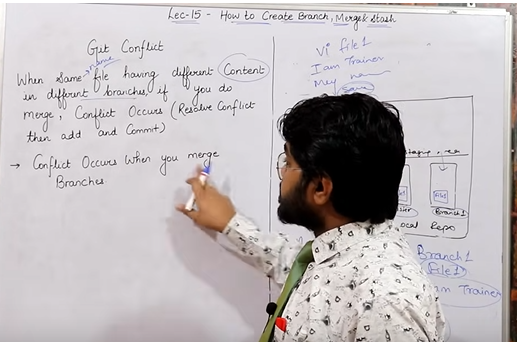 Lec-15 - How to Create Branch, Merge & Stash
Git Conflict
name
When Same file having different Content
in different branches, if you do
merge, Conflict Occurs (Resolve Conflict
then add and Commit)
→ Conflict Occurs when you merge
Branches
Vi file1
I am Trainer
Mey
Save
Branch1
Local Repo
Branch1
file1
am Trainer